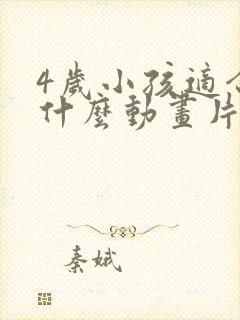 4歲小孩適合
什麼動畫片
秦娥